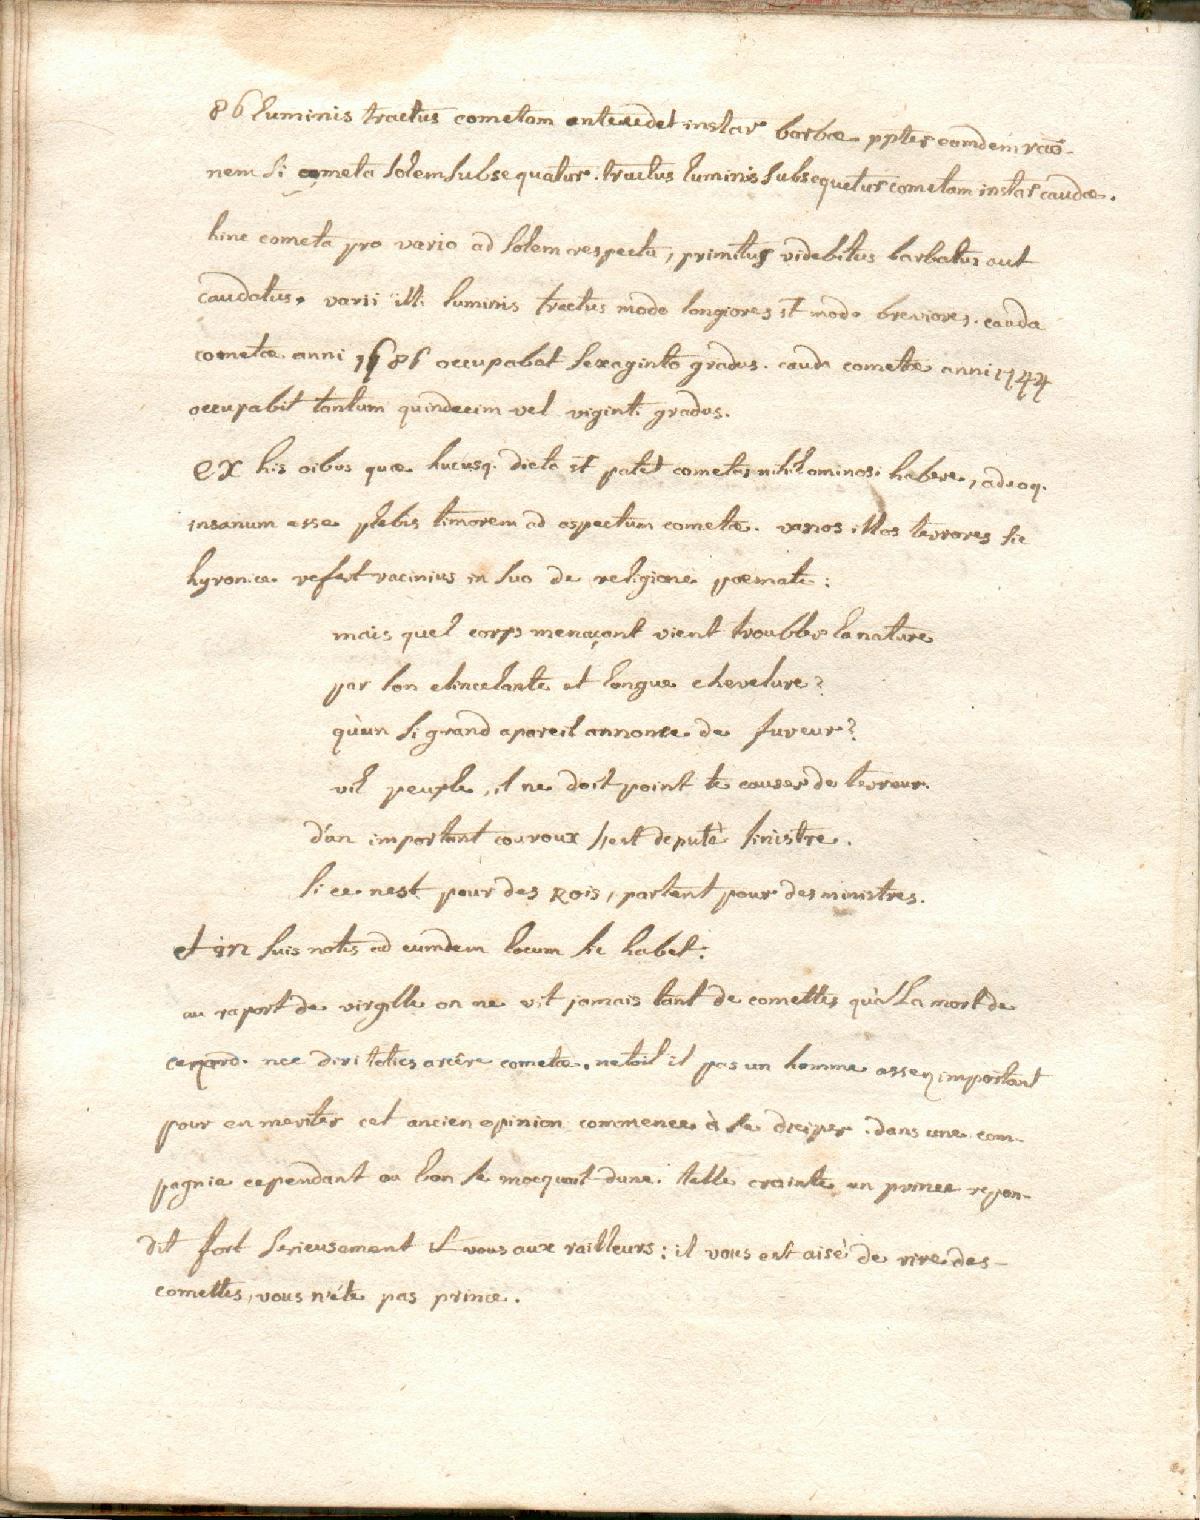 86 luminis tractus cometam antecedet instar barbæ pptèr eamdem raõ-
nem si cometa solem subsequatur. tractus luminis subsequetur cometam instar caudæ.
hinc cometa pro vario ad solem respectu, primitus videbitus barbatus aut
caudatus. varii illi luminis tractus modo longiores st modo breviores. cauda
cometæ anni 1686 occupabat sexaginta gradus. cauda cometæ anni 1744
occupabit tantum quindecim vel viginti gradus.
ex his oibus quæ hucusq. dicta st patet cometas nihil ominosi habere, adeoq.
insanum esse plebis timorem ad aspectum cometæ. vanos illos terrores sic
hyronice refert racinius in suo de religione poemate:
mais quel corps menaçant vient troubler la nature
par son etincelante et longue chevelure?
qu'un si grand apareil annonce de fureur?
vil peuple, il ne doit point te causer de terreur.
d'un important couroux s'est deputé sinistre.
si ce nest pour des Rois, partent pour des ministres.
et in suis notis ad eumdem locum sic habet:
au raport de virgille on ne vit jamais tant de comettes qu'à la mort de
nec diri toties arcêre cometæ. netoit il pas un homme assez important
pour en meriter cet ancien opinion commence à se diciper. dans une com-
pagnie cependant ou lon se mocquait dune telle crainte un prince repon-
dit fort serieusement it vous aux railleurs: il vous est aisé de rire des
comettes, vous n'ête pas prince.